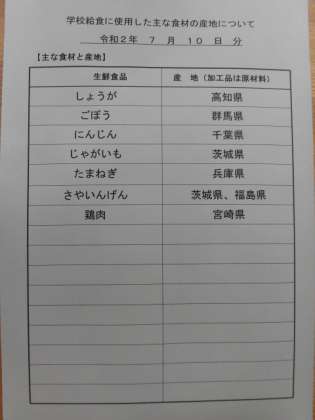 学校給食に使用した主な食材の産地について
令和2年 7 月 10 日 分
【主な食材と産地】
生鮮食品 産 地（加工品は原材料）
しょうが 高知県
ごぼう 群馬県
にんじん 千葉県
じゃがいも 茨城県
たまねぎ 兵庫県
さやいんげん 茨城県、福島県
鶏肉 宮崎県